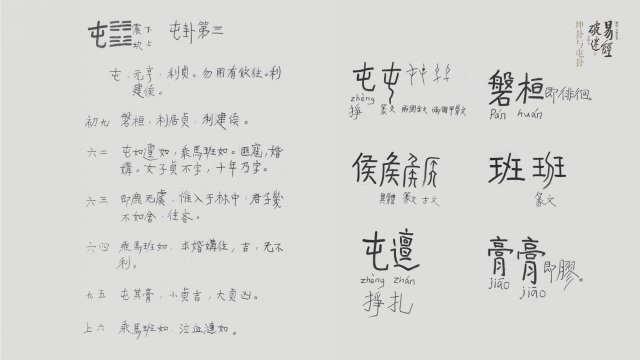 屯 震下 坎上 屯卦第三
屯，元亨，利貞。勿用有攸往。利
建侯。
初九 磐桓，利居貞，利建侯。
六二 屯如邅如，乘馬班如。匪寇，婚
媾。女子貞不字，十年乃字。
六三 即鹿无虞，惟入于林中，君子幾
不如舍，往吝。
六四 乘馬班如，求婚媾往，吉，无不
利。
九五 屯其膏，小貞吉，大貞凶。
上六 乘馬班如，泣血漣如。
易經
破迷
坤卦与屯卦
屯
zhèng
掙 篆文 兩個金文 兩個甲骨文
磐桓 即徘徊。
Pán huán
侯
楷體 篆文 古文
班
篆文
屯邅
zhèng zhán
掙扎
膏膏 即膠。
jiāo jiāo